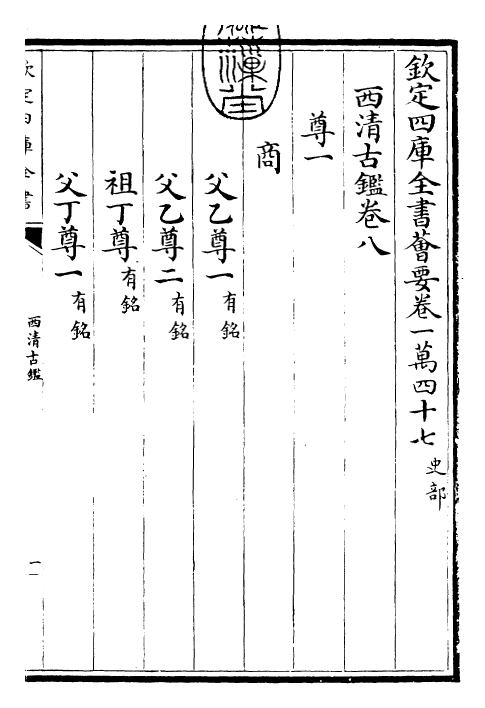 欽定四庫全書薈要卷一萬四十七史部
西清古鑑卷八
尊一
商
父乙尊一有銘
父乙尊二有銘
祖丁尊有銘
父丁尊一有銘
欽定四庫全書
西清古鑑
一